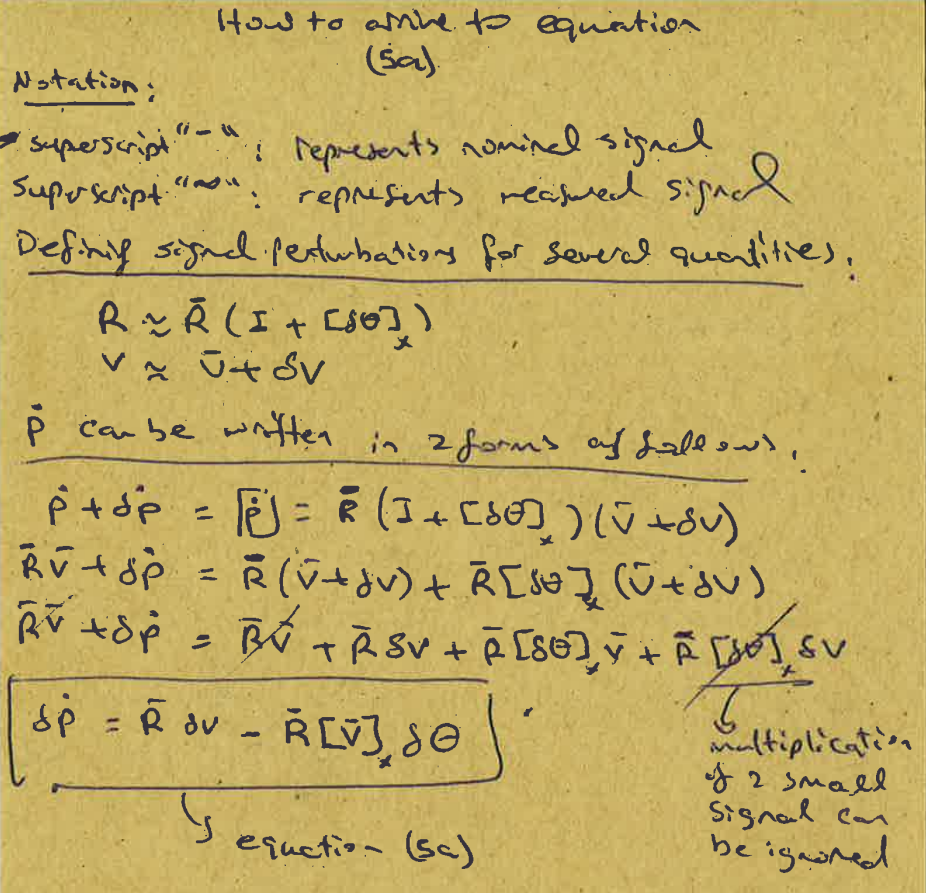 How to arrive to equation
(5a)
Notation:
superscript "-": represents nominal signal
superscript "~": represents measured signal
Defining signal perturbations for several quantities.
R ≈ R̄ (I + [δθ]ₓ)
v ≈ v̄ + δv
ṗ can be written in 2 forms as follows.
ṗ + δṗ = [ṗ] = R̄ (I + [δθ]ₓ)(v̄ + δv)
R̄v̄ + δṗ = R̄(v̄ + δv) + R̄[δθ]ₓ(v̄ + δv)
R̄v̄ + δṗ = R̄v̄ + R̄δv + R̄[δθ]ₓv̄ + R̄[δθ]ₓδv
δṗ = R̄ δv - R̄[v̄]ₓ δθ
multiplication
of 2 small
signal can
be ignored
equation (5a)